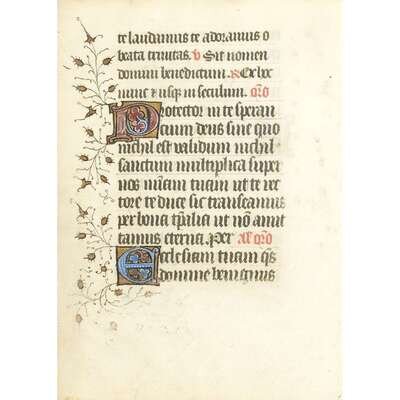 te laudamus te adoramus o
beata trinitas. V Sit nomen
domini benedictum. R Ex hoc
nunc & usq; in seculum. oro
Protector in te speran
cium deus sine quo
nichil est validum nichil
sanctum multiplica super
nos mīam tuam ut te rec
tore te duce sic transeamus
per bona tpalia ut nō amit
tamus eterna. per al oro
Ecclesiam tuam qs
domine benignus